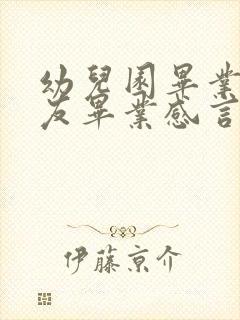 幼兒園畢業
友畢業感言
伊藤京介